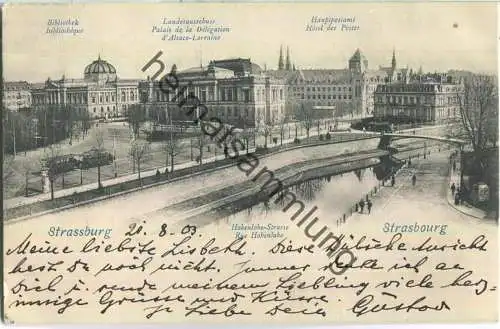 Bibliothek
bibliothèque
Landesausschuss
Palais de la Délégation
d'Alsace-Lorraine
Hauptpostamt
Hôtel des Postes
heimatsammlung.de
Strassburg
20. 8. 03
Hohenlohe-Strasse
Rue Hohenlohe
Strasbourg
Meine liebste Lisbeth. Diese hübsche Ansicht
hast Du noch nicht. Immer denke ich an
Dich u. sende meinem Liebling viele herz
innige Grüsse und Küsse.
Dein Gustav